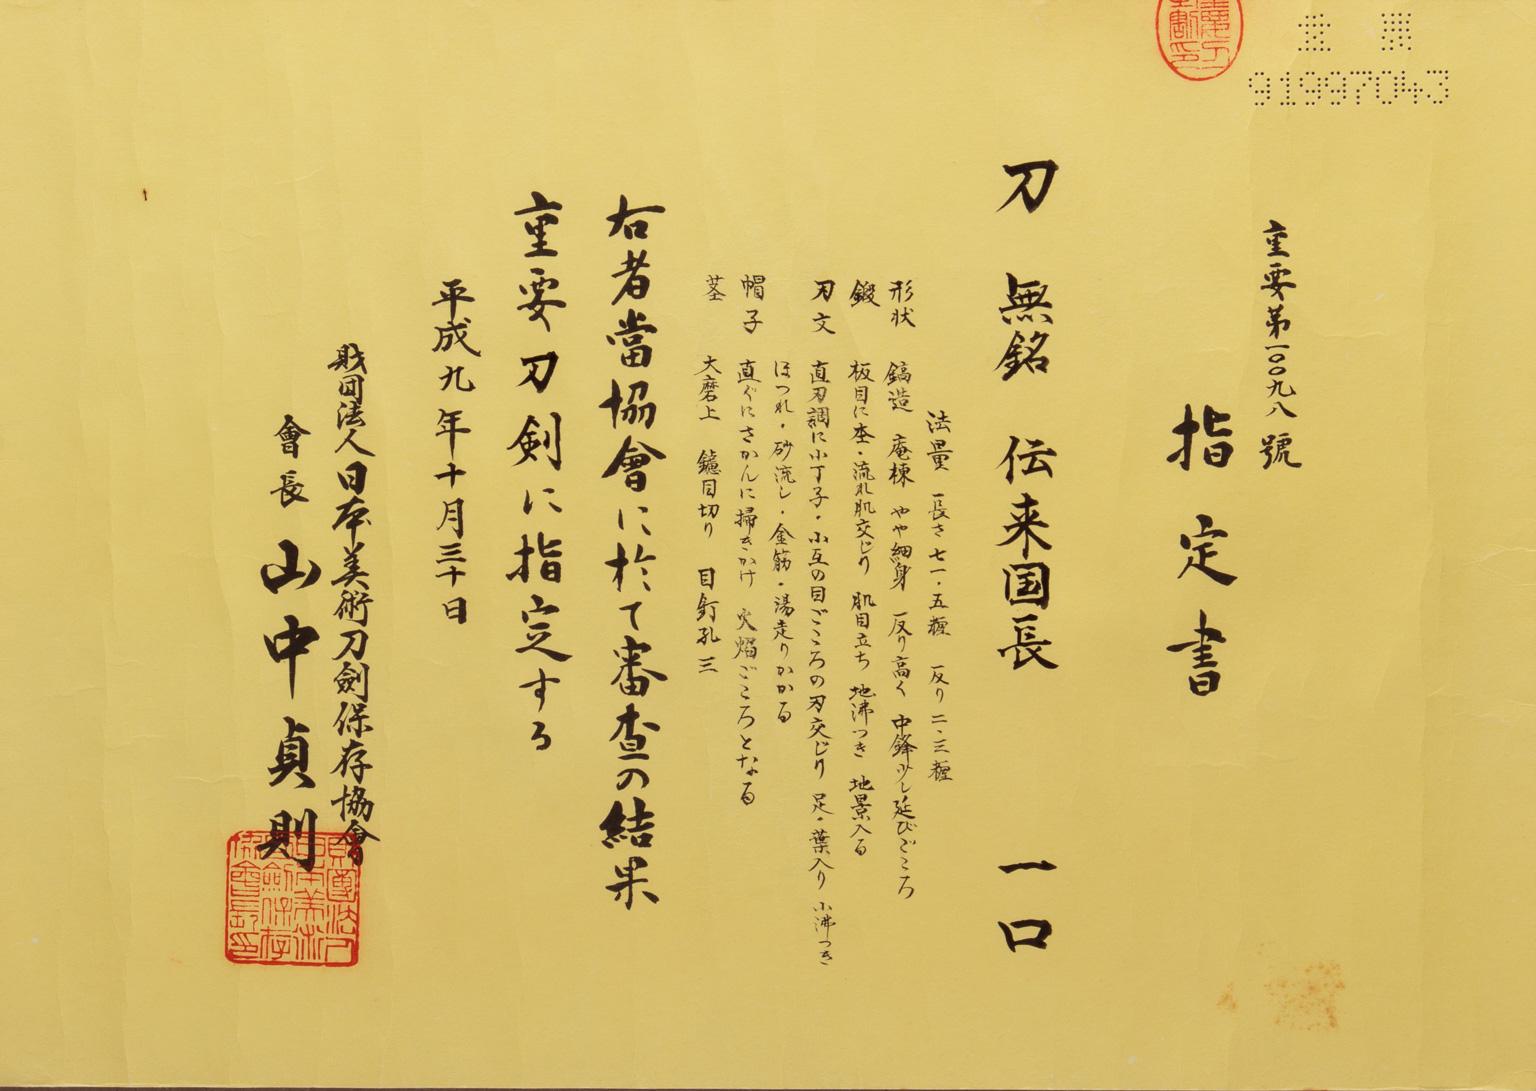 91997043
重要第一〇〇九八號
指定書
刀 無銘 伝来国長 一口
法量 長さ七一・五糎 反り二・三糎
形状 鎬造 庵棟 やや細身 反り高く 中鋒少し延びごころ
鍛 板目に杢・流れ肌交じり 肌目立ち 地沸つき 地景入る
刃文 直刃調に小丁子・小互の目ごころの刃交じり 足・葉入り 小沸つき
ほつれ・砂流し・金筋・湯走りかかる
帽子 直ぐにさかんに掃きかけ 火焔ごころとなる
茎 大磨上 鑢目切り 目釘孔三
右者當協會に於て審査の結果
重要刀剣に指定する
平成九年十月三十日
財団法人日本美術刀劍保存協會
會長 山中貞則
財團法人日本美術刀劍保存協會長印